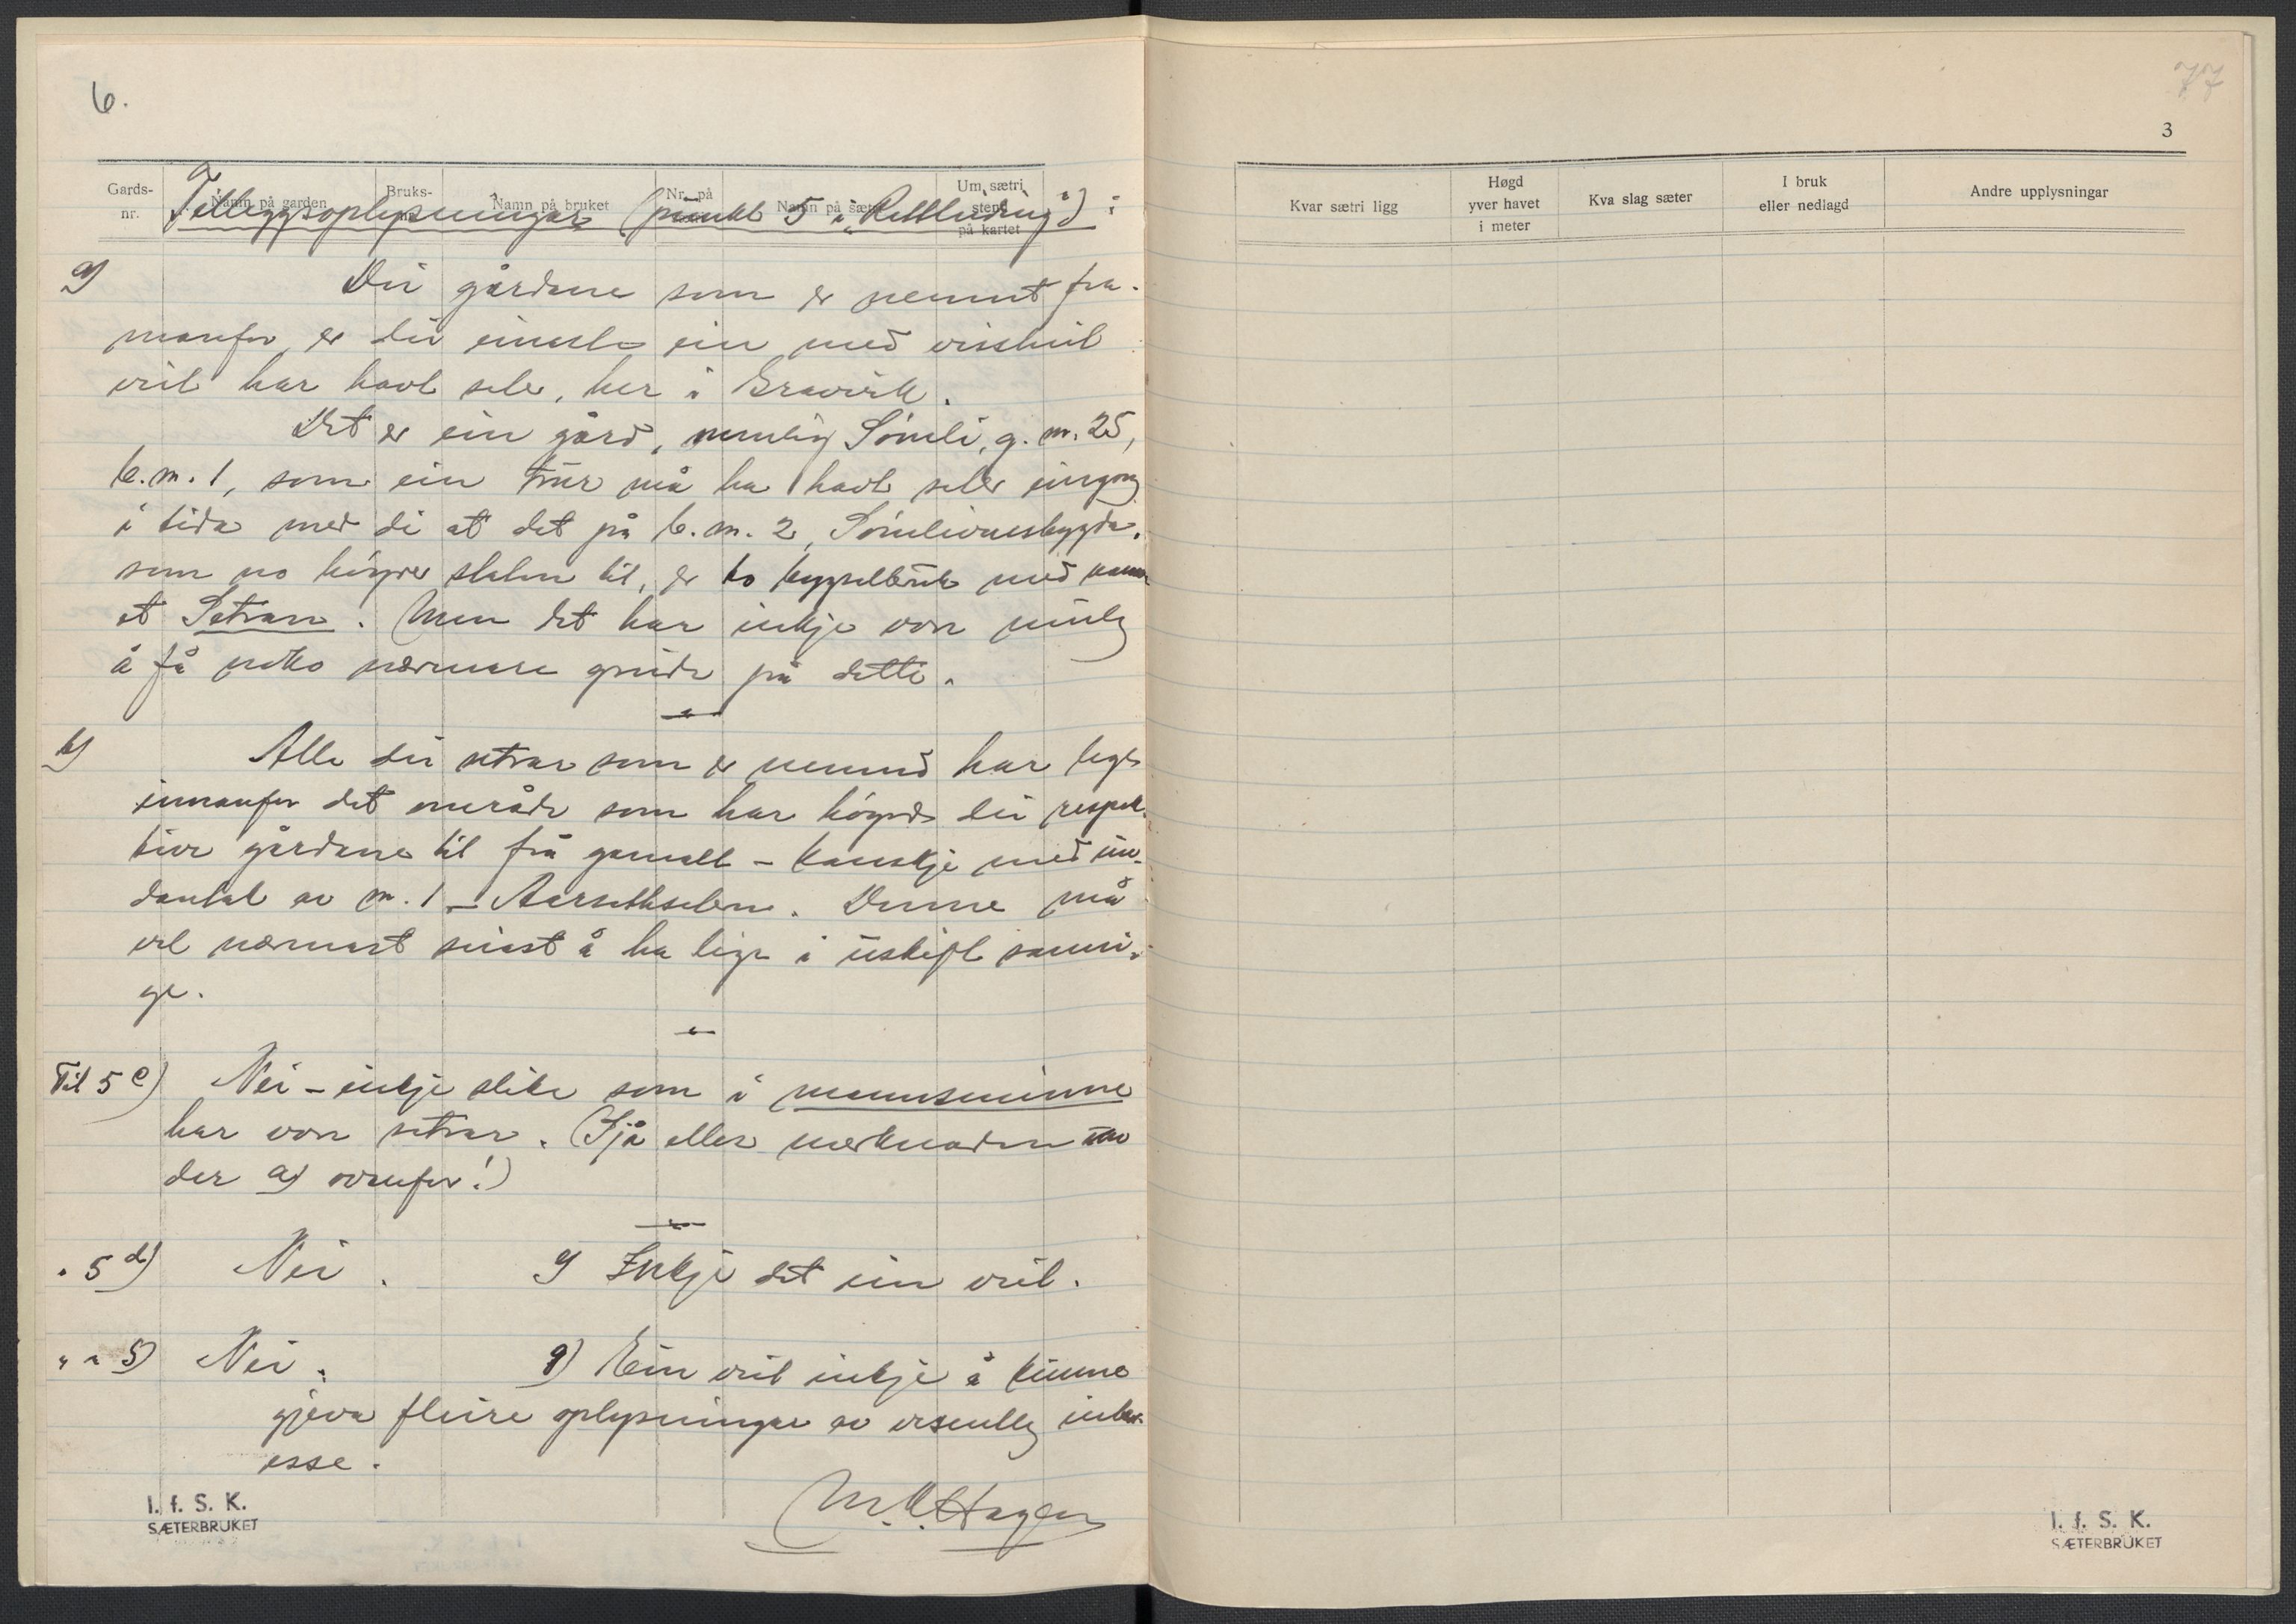 6.
77
3
Gards-
nr.
Namn på garden
Bruks-
nr.
Namn på bruket
Nr. på
Namn på sætri
Um sætri
stend
på kartet
Tilleggsoplysningar (punkt 5 i „Rettleiding“):
a) Dei gårdane som er nemnt fra-
manfor er dei einaste ein med vissheit
veit har havt seter, her i Gravvik.
Det er ein gård, nemleg Sömli, g. nr. 25,
b. nr. 1, som ein trur må ha havt seter eingong
i tida med di at det på b. nr. 2,
som no höyrer staten til, er to bygselbruk med namn
et Setran. Men det har inkje vore muleg
å få noko nærmare greide på dette.
b) Alle dei setrar som er nemnd har legi
innanfor det område som har höyrd dei respek-
tive gårdane til frå gamalt - kanskje med un-
dantak av nr. 1 - Aarsethsetern. Denne må
vel nærmast seiast å ha lige i uskift samei-
ge.
Til 5 c) Nei - inkje slike som i mannsminne
har vore setrar. (Sjå elles merknaden un
der a) ovanfor!)
" 5 d) Nei. Inkje det ein veit.
" " 5) Nei. g) Ein veit inkje å kunne
gjeva fleire oplysningar av vesentleg inter-
esse.
M. O. Hagen
I. f. S. K.
SÆTERBRUKET
Kvar sætri ligg
Høgd
yver havet
i meter
Kva slag sæter
I bruk
eller nedlagd
Andre upplysningar
I. f. S. K.
SÆTERBRUKET